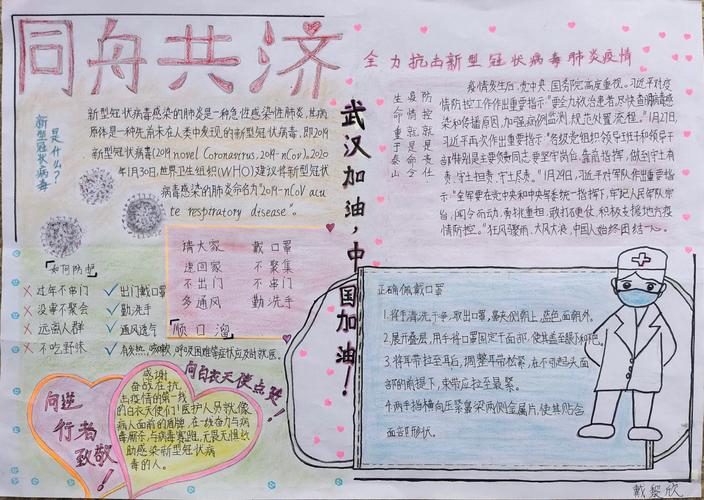 同舟共济
全力抗击新型冠状病毒肺炎疫情
新型冠状病毒
是什么？
新型冠状病毒感染的肺炎是一种急性感染性肺炎，其病
原体是一种先前未在人类中发现的新型冠状病毒，即2019
新型冠状病毒(2019 novel Coronavirus, 2019-nCov)。2020
年1月30日，世界卫生组织(WHO)建议将新型冠状
病毒感染的肺炎命名为"2019-nCV acu
te respiratory disease"。
武汉加油，中国加油！
生命重于泰山
疫情就是命令
防控就是责任
疫情发生后，党中央、国务院高度重视。习近平对疫
情防控工作作出重要指示："要全力救治患者，尽快查清病毒感
染和传播原因，加强病例监测，规范处置流程。"1月27日，
习近平再次作出重要指示："各级党组织领导班子和领导干
部特别是主要负责同志要坚守岗位、靠前指挥，做到守土有
责、守土担责、守土尽责。"1月29日，习近平对军队作出重要指
示："全军要在党中央和中央军委统一指挥下，牢记人民军队宗
旨，闻令而动，勇挑重担，敢打硬仗，积极支援地方疫
情防控。"狂风骤雨，大风大浪，中国人始终团结一心。
「如何防护」
× 过年不串门 ✓ 出门戴口罩
× 没事不聚会 ✓ 勤洗手
× 远离人群 ✓ 通风透气
× 不吃野味 ✓ 有发热，咳嗽，呼吸困难等症状应及时就医。
请大家 戴口罩
速回家 不聚集
不出门 不串门
多通风 勤洗手
「顺口溜」
正确佩戴口罩
1.将手清洗干净，取出口罩，鼻夹侧朝上，蓝色面朝外。
2.展开叠层，用手将口罩固定于面部，使其盖至眼下和
3.将耳带拉至耳后，调整耳带松紧，在不引起头面
部的前提下，束带应拉至最紧。
4.两手指横向压紧鼻梁两侧金属片，使其贴合
面部形状。
向逆
行者
致敬！
向白衣天使点赞！
感谢
奋战在抗
击疫情的第一线
的白衣天使们！医护人员就像
病人面前的盾牌，在一线奋力与病
毒厮杀，与病毒赛跑，无畏无惧地
助感染新型冠状病
毒的人。
戴黎欣